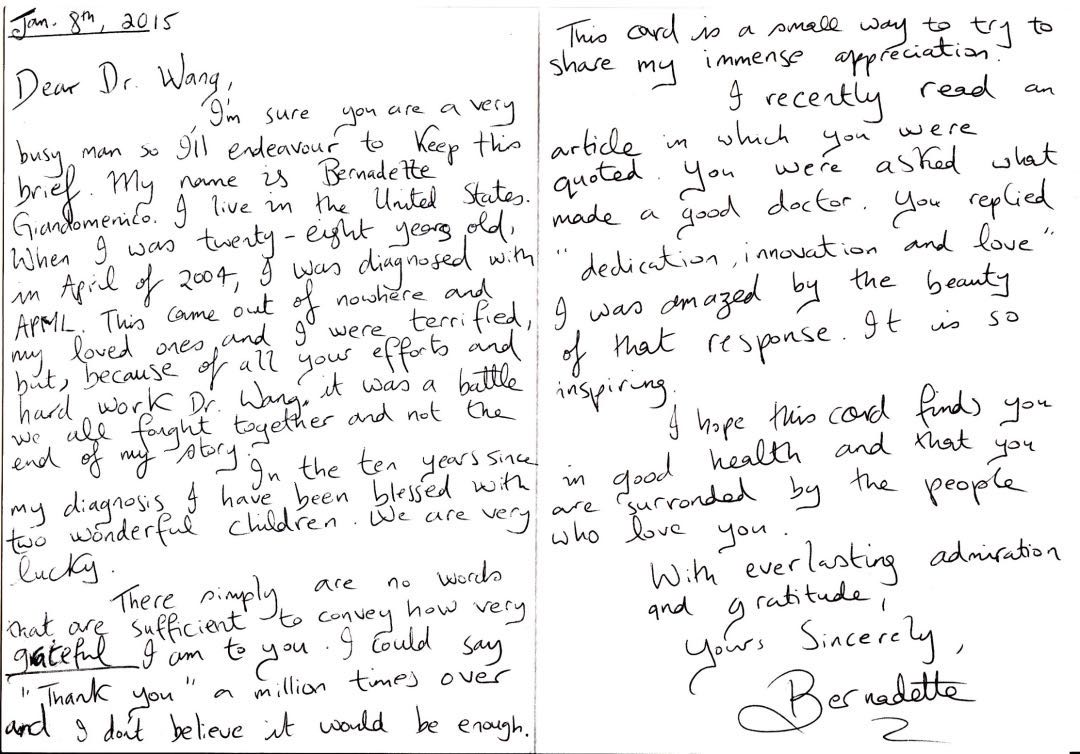 Jan. 8th, 2015
Dear Dr. Wang,
I'm sure you are a very
busy man so I'll endeavour to keep this
brief. My name is Bernadette
Giandomenico. I live in the United States.
When I was twenty-eight years old,
in April of 2004, I was diagnosed with
APML. This came out of nowhere and
my loved ones and I were terrified,
but, because of all your efforts and
hard work Dr. Wang, it was a battle
we all fought together and not the
end of my story.
In the ten years since
my diagnosis I have been blessed with
two wonderful children. We are very
lucky.
There simply are no words
that are sufficient to convey how very
grateful I am to you. I could say
"Thank you" a million times over
and I don't believe it would be enough.
This card is a small way to try to
share my immense appreciation.
I recently read an
article in which you were
quoted. You were asked what
made a good doctor. You replied
"dedication, innovation and love"
I was amazed by the beauty
of that response. It is so
inspiring.
I hope this card finds you
in good health and that you
are surronded by the people
who love you.
With everlasting admiration
and gratitude,
Yours Sincerely,
Bernadette